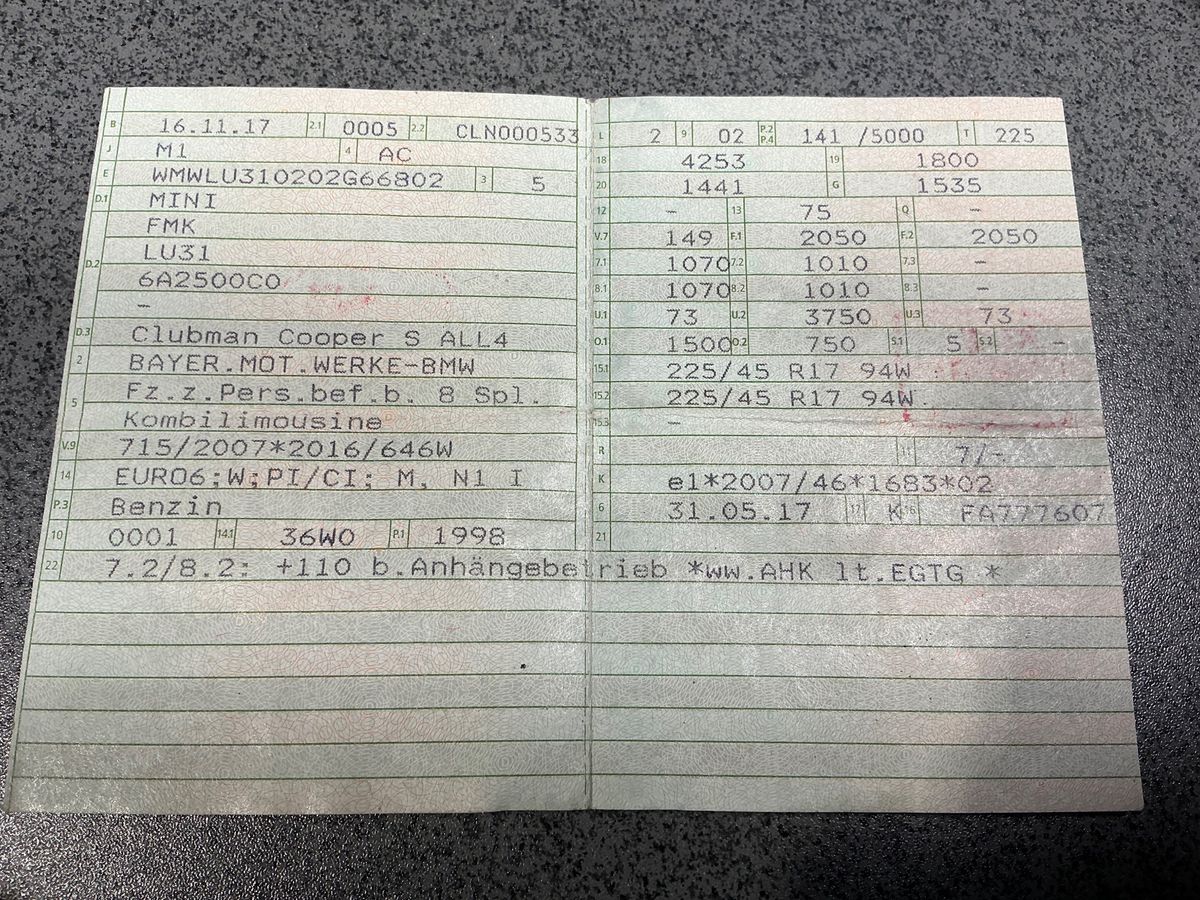 B 16.11.17 2.1 0005 2.2 CLN000533
J M1 4 AC
E WMWLU310202G66802 3 5
D.1 MINI
FMK
D.2 LU31
6A2500C0
–
D.3 Clubman Cooper S ALL4
2 BAYER.MOT.WERKE-BMW
5 Fz.z.Pers.bef.b. 8 Spl.
Kombilimousine
V.9 715/2007*2016/646W
14 EURO6;W;PI/CI; M, N1 I
P.3 Benzin
10 0001 14.1 36W0 P.1 1998
L 2 9 02 P.2 P.4 141 /5000 T 225
18 4253 19 1800
20 1441 G 1535
12 – 13 75 Q –
V.7 149 F.1 2050 F.2 2050
7.1 1070 7.2 1010 7.3 –
8.1 1070 8.2 1010 8.3 –
U.1 73 U.2 3750 U.3 73
O.1 1500 O.2 750 S.1 5 S.2 –
15.1 225/45 R17 94W
15.2 225/45 R17 94W
15.3 –
R 11 7/–
K e1*2007/46*1683*02
6 31.05.17 17 K 16 FA777607
21
22 7.2/8.2: +110 b.Anhängebetrieb *ww.AHK lt.EGTG *